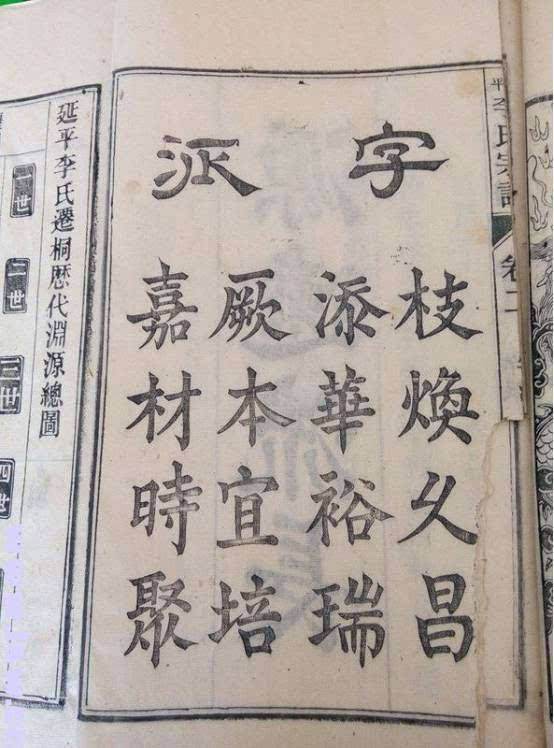 字派
枝煥久昌
添華裕瑞
厥本宜培
嘉材時聚
平李氏宗譜
卷二
延平李氏遷桐歷代淵源總圖
一世
二世
三世
四世